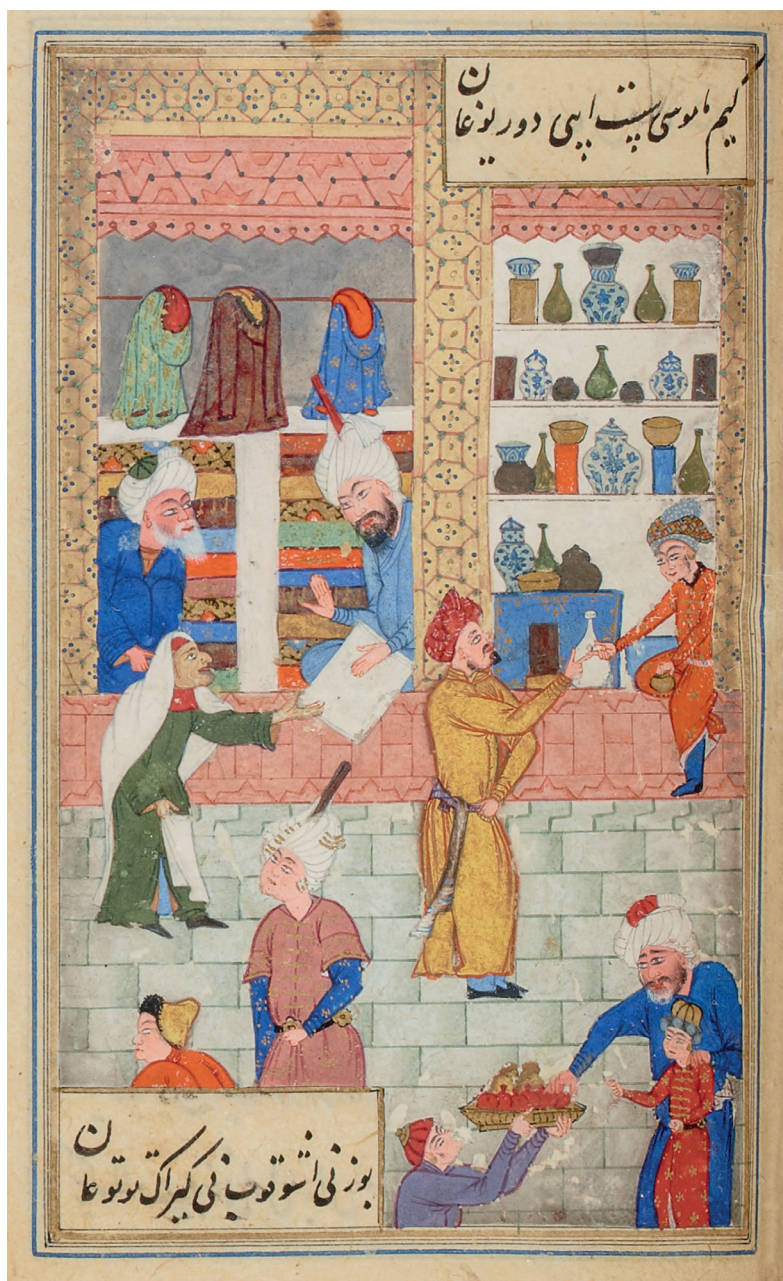 کیم ناموسی ایپی دور یوغان
بوزنی اشوقوب نی کیراک توتوغان